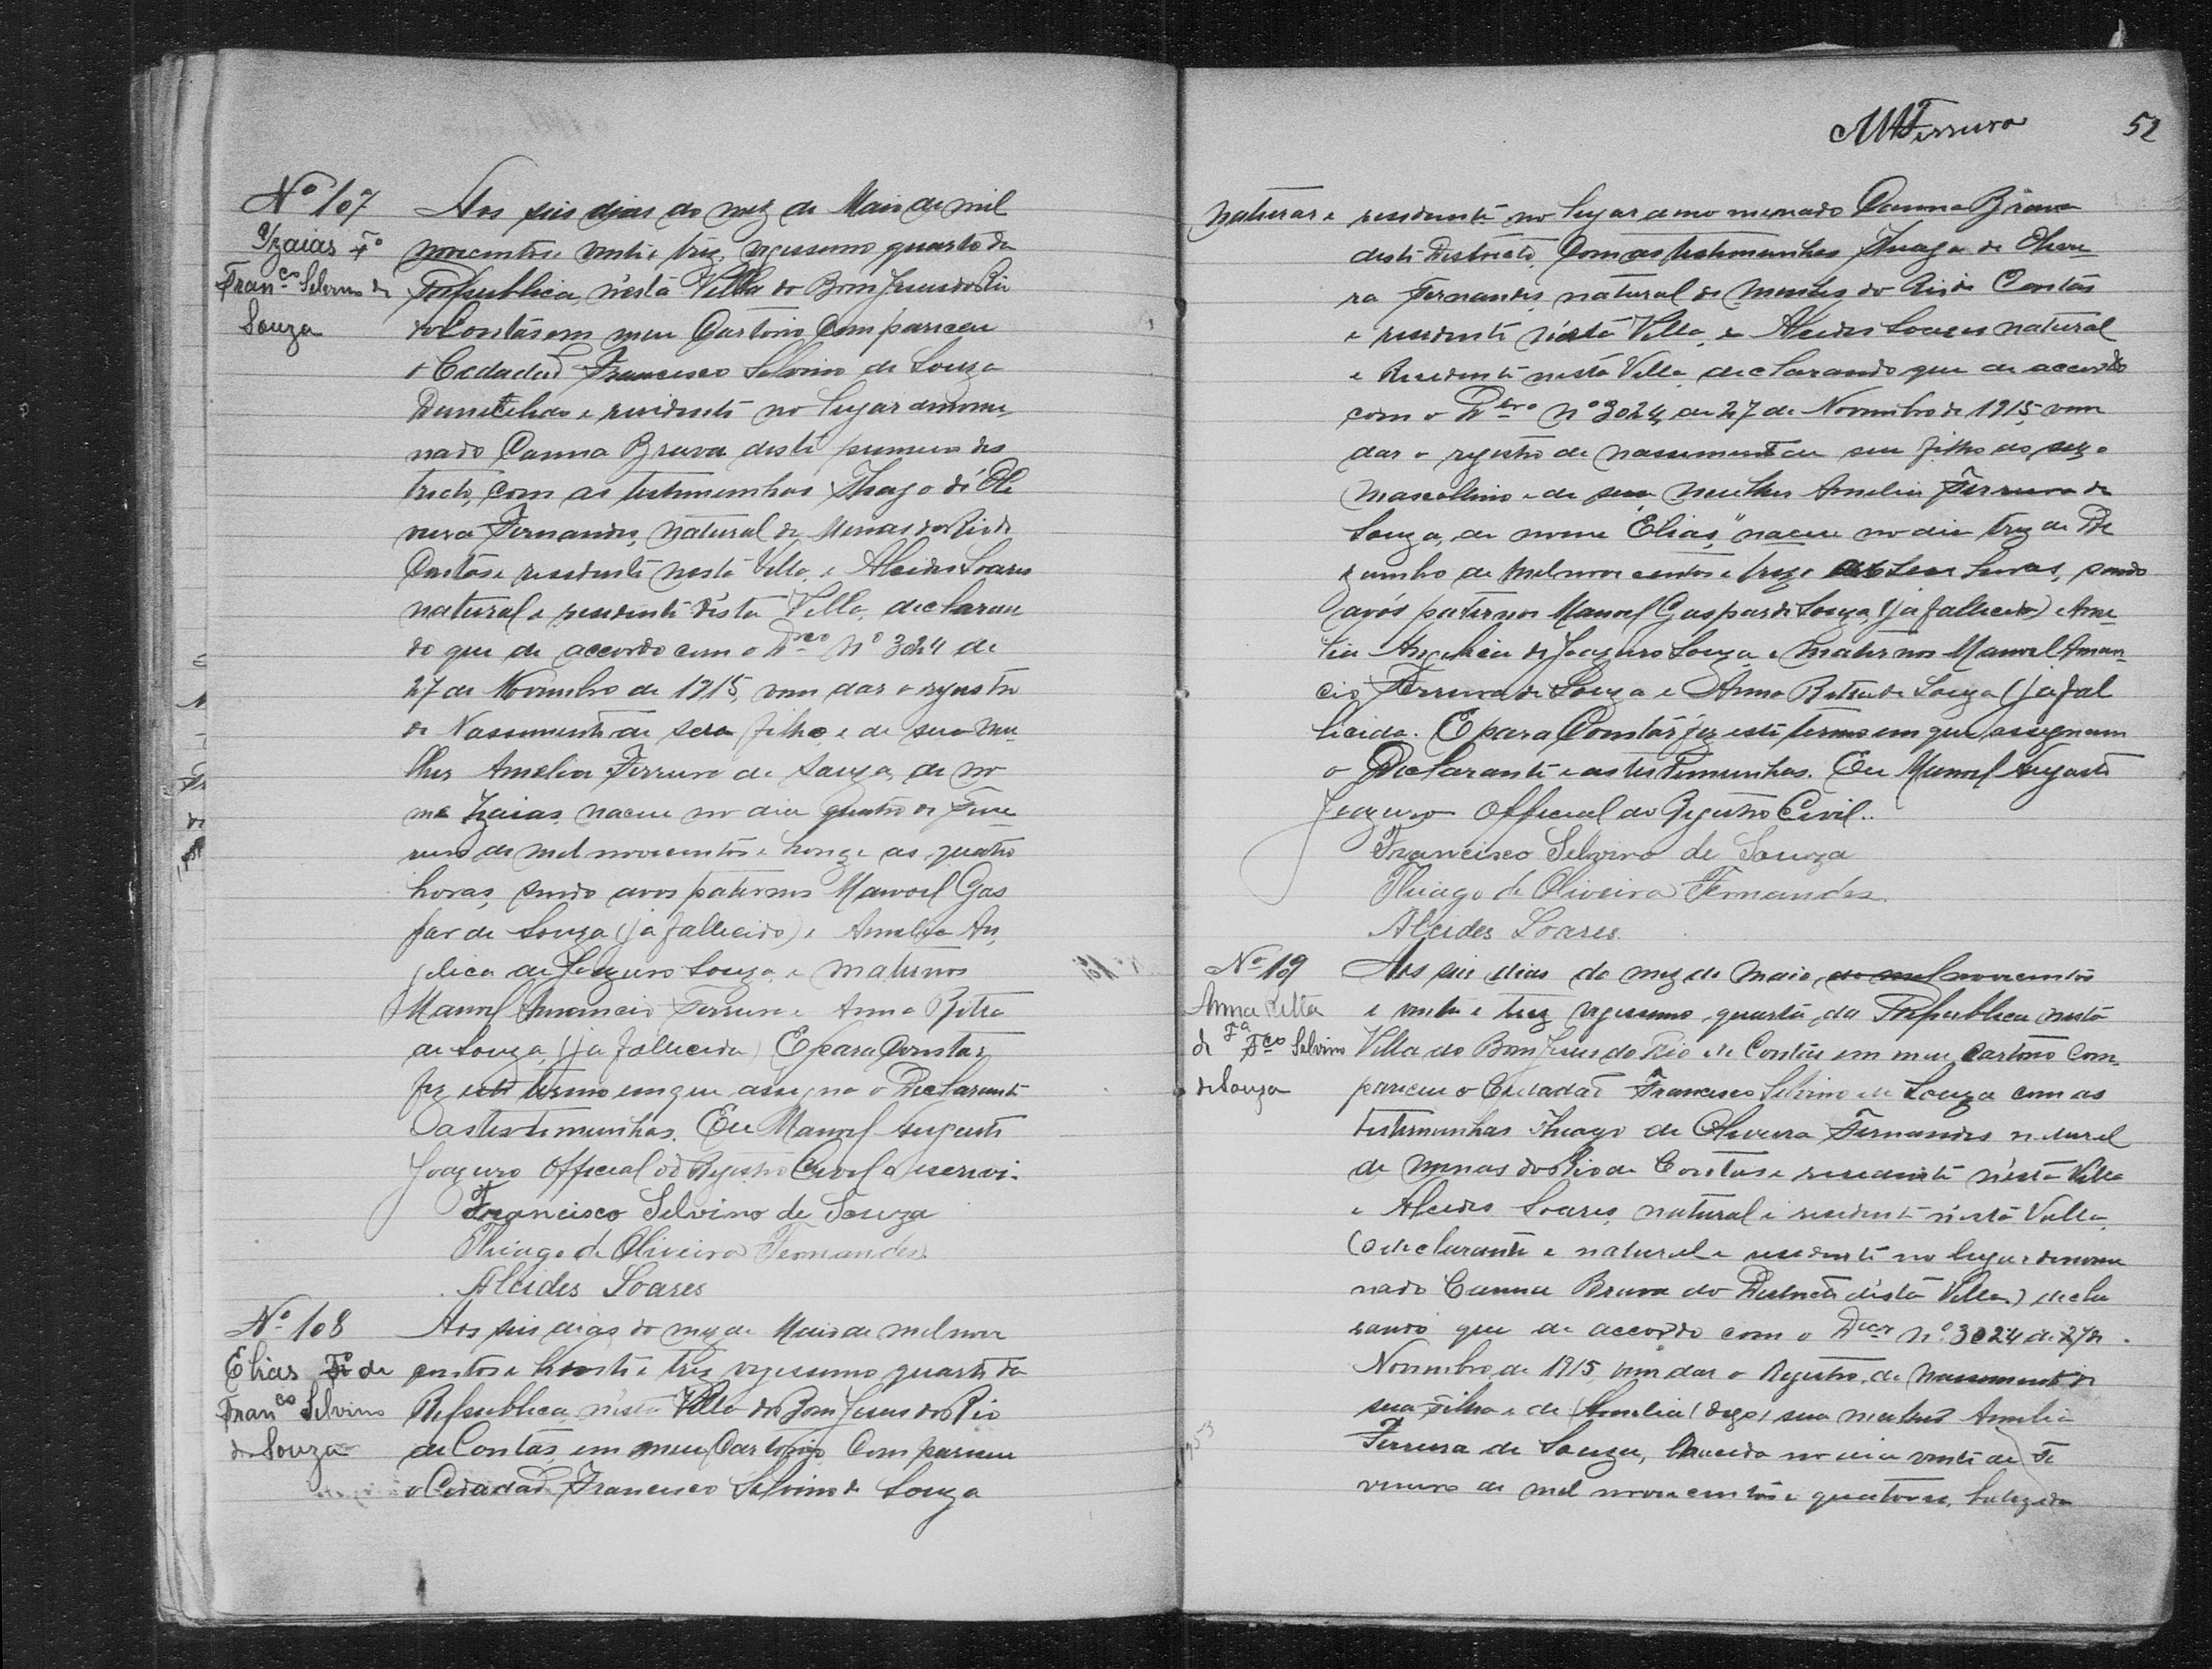 Nº 107
Izaias Fº
Franco Selvino de
Souza
Aos seis dias do mez de Maio de mil
novecentos e vinte e trez, vigessimo quarto da
Republica, n'esta Villa do Bom Jesus do Rio
de Contas em meu Cartorio Compareceu
o Cidadad Francisco Selvino de Souza
Domicilido e residente no lugar denomi-
nado Canna Brava deste primeiro des
tricto, com as testimunhas Thiago de Oli
veira Fernandes, natural de Minas do Rio de
Contas e residente nesta Villa, e Alcides Soares
natural e residente désta Villa, declaran
do que de accordo com o Dreo Nº 3024 de
27 de Novembro de 1915, vem dar o registro
de Nassimento de seu filho, e de sua mu-
lher Amelia Ferreira de Souza, de no
me Izaias, naceu no dia quatro de Feve-
reiro de mil novecentos e honze as quatro
horas, sendo avos paternos Manoel Gas
par de Souza (ja fallecido) e Amelia An
gelica de Joazeiro Souza, e maternos
Manoel Amancio Ferreira e Anna Ritta
de Souza (ja fallecida) E para Constar
fiz este termo em que assigna o Declarante
e as testimunhas. Eu Manoel Augusto
Joazeiro Official do Registro Civil o escrevi.
Francisco Selvino de Souza
Thiago de Oliveira Fernandes.
Alcides Soares
Nº 108
Elias Fº de
Franco Selvino
de Souza
Aos seis dias do mez de Maio de mil nove
centos e vinte e trez vigessimo quarto da
Republica, nésta Villa do Bom Jesus do Rio
de Contas, em meu Cartorio Compareceu
o Cidadad Francisco Selvino de Souza
52
natural e residente no lugar denominado Canna Brava
deste Destricto, Com as testimunhas Thiago de Olivei-
ra Fernandes, natural de Minas do Rio de Contas
e residente nésta Villa, e Alcides Soares natural
e Residente nesta Villa, declarando que de accordo
com o Dcro nº 3024, de 27 de Novembro de 1915, vem
dar o registro de nassimento de seu filho do sexo
Mascollino e de sua mulher Amelia Ferreira de
Souza, de nome "Elias," naceu no dia trez de De
zembro de mil nove centos e treze as horas, sendo
avós paternos Manoel Gaspar de Souza, (ja fallecido) e Ame-
lia Angelica de Joazeiro Souza, e maternos Manoel Aman-
cio Ferreira de Souza e Anna Ritta de Souza (ja fal
licida. E para Constar fiz este termo em que assignam
o Declarante e as testimunhas. Eu Manoel Augusto
Joazeiro Official do Registro Civil..
Francisco Selvino de Souza
Thiago de Oliveira Fernandes.
Alcides Soares.
Nº 109
Anna Ritta
Fª
de Fco Selvino
de Souza
Aos seis dias do mez de Maio, de mil novecentos
e vinte e trez vigessimo quarta da Republica nesta
Villa do Bom Jesus do Rio de Contas em meu Cartorio Com-
pareceu o Cidadad Francisco Selvino de Souza com as
testimunhas Thiago de Oliveira Fernandes natural
de Minas do Rio de Contas e residente nésta Villa
e Alcides Soares, natural e residente nésta Villa,
(o declarante e natural e residente no lugar denomi
nado Canna Brava do Destricto désta Villa) decla
rando que de accordo com o Decr Nº 3024 de 27 de
Novembro de 1915, vem dar o Registro, de nassimento de
sua filha e de Amelia (digo) sua mulher Amelia
Ferreira de Souza, nacida no dia vinte de Fe
vereiro de mil nove centos e quatorze, batizada